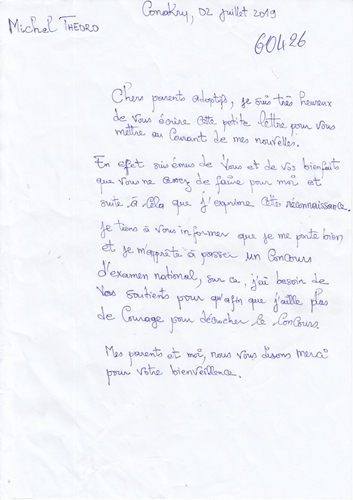 Conakry, 02 juillet 2019
Michel THEORO
60426
Chers parents adoptifs, je suis très heureux
de vous écrire cette petite lettre pour vous
mettre au courant de mes nouvelles.
En effet suis émus de vous et de vos bienfaits
que vous ne cessez de faire pour moi et
suite à cela que j'exprime cette reconnaissance.
Je tiens à vous informer que je me porte bien
et je m'apprète à passer un concours
d'examen national, sur ce, j'ai besoin de
vos soutients pour qu'afin que j'aille plus
de courage pour décrocher le concours.
Mes parents et moi, nous vous disons merci
pour votre bienveillence.